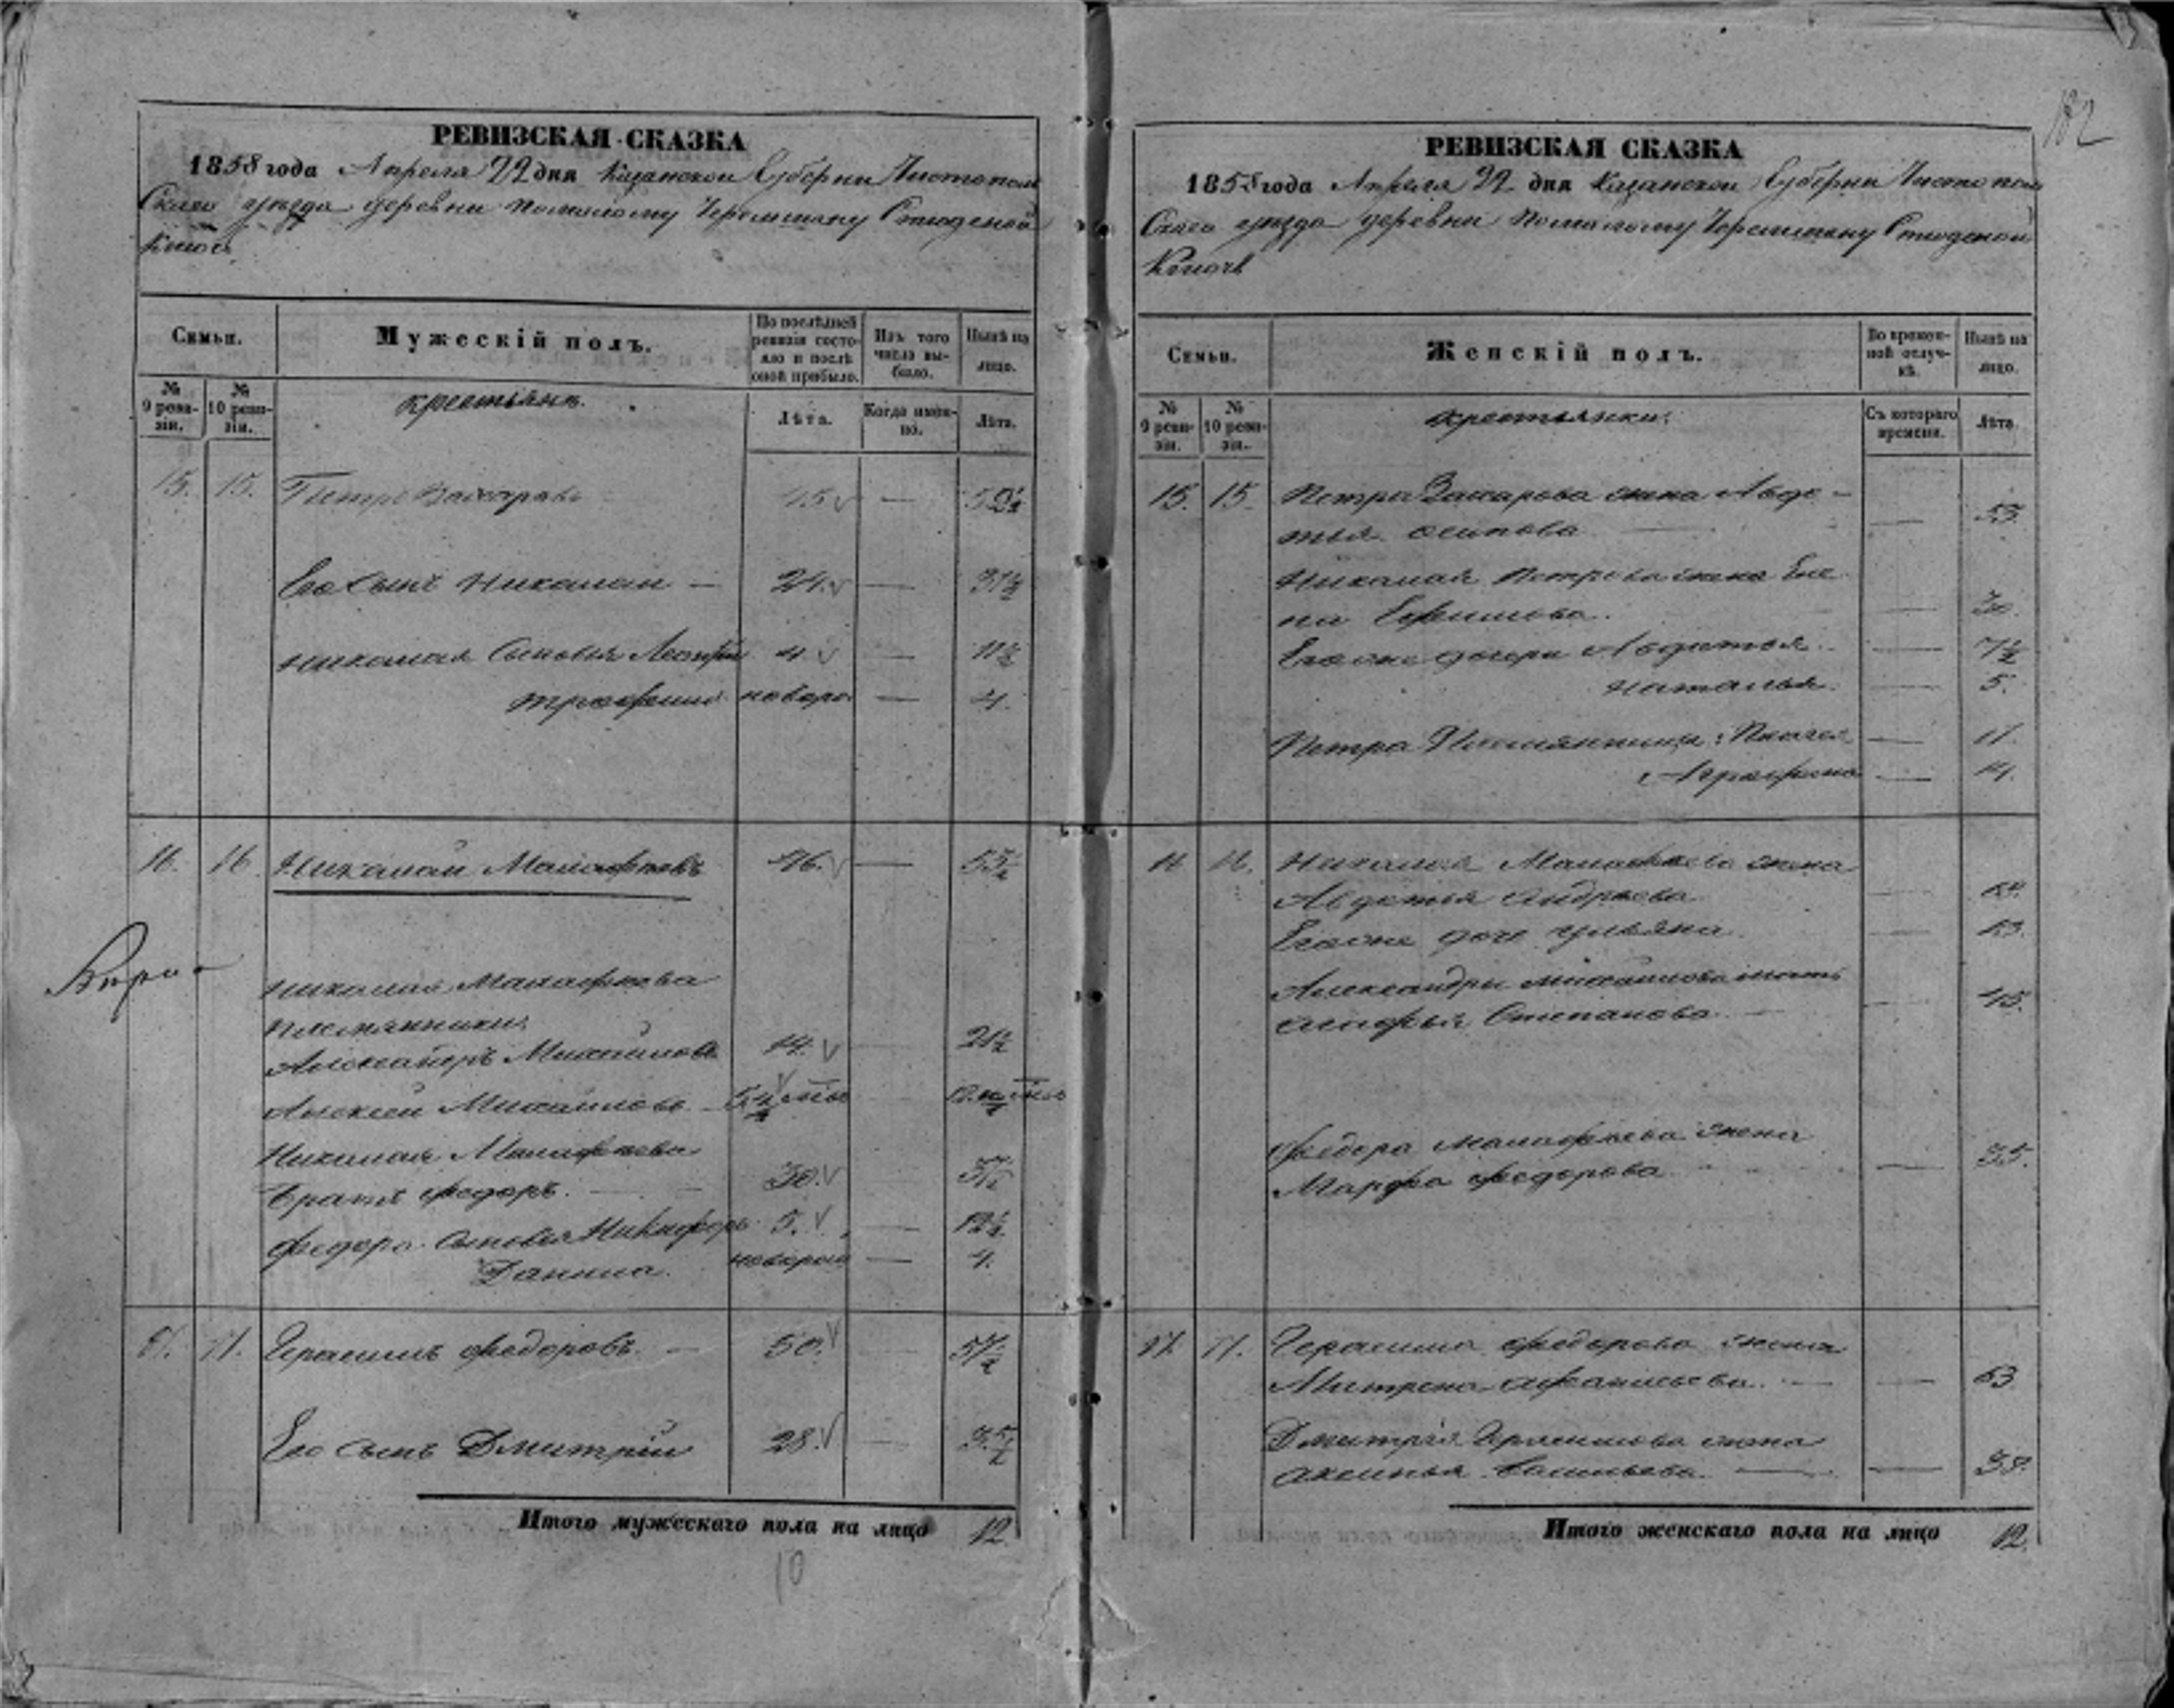 182
РЕВИЗСКАЯ СКАЗКА
1858 года Апреля 22 дня Казанской Губернии Чистополь
Скаго уезда деревни по малому Черемшану Студеной
Ключъ
Семьи.
Мужескій полъ.
По послѣдней ревизіи состояло и послѣ оной прибыло.
Изъ того числа выбыло.
Нынѣ на лицо.
№ 9 ревизіи.
№ 10 ревизіи.
крестьянъ.
Лѣта.
Когда именно.
Лѣта.
15. 15. Петръ Захаровъ 45 — 52½
Его сынъ Николай — 24. — 31½
Николая Сыновья 4 — 11½
Трофимъ новоро — 4.
16. 16. Николай Малафѣевъ 46. — 53½
Николая Малафѣева
племянники:
Александръ Михайловъ 14. 21½
Алексей Михайловъ
Николая Малафѣева
братъ Федоръ. 30. 37½
Федора Сыновья Никифоръ 5. — 12½
Данила. новорож — 4.
17. 17. Герасимъ Федоровъ. — 50. 57½
Его сынъ Дмитрій 28. 35½
Итого мужескаго пола на лицо 12.
10
РЕВИЗСКАЯ СКАЗКА
1858 года Апреля 22 дня Казанской Губерни Чистополь
Скаго уезда деревни по малому Черемшану Студеной
Ключъ
Семьи.
Женскій полъ.
Во временной отлучкѣ.
Нынѣ на лицо.
№ 9 ревизіи.
№ 10 ревизіи.
крестьянки:
Съ котораго времени.
Лѣта.
15. 15. Петра Захарова жена Авдо-
тья Осипова — 53.
Николая Петрова жена Еле
на Ефимова. — 30.
Его дочери Авдотья — 7½
Наталья. — 5.
Петра племянницы:
Аграфена
16. 16. Николая Малафѣева жена
Авдотья Андреева —
Ульяна
Александры Михайлова мать
Степанова — 45.
Федора Малафѣева жена
Марфа Федорова — 35.
17. 17. Герасима Федорова жена
Матрена Афанасьева. — 53
Дмитрія Герасимова жена
Аксинья Васильева. — 38.
Итого женскаго пола на лицо 12.